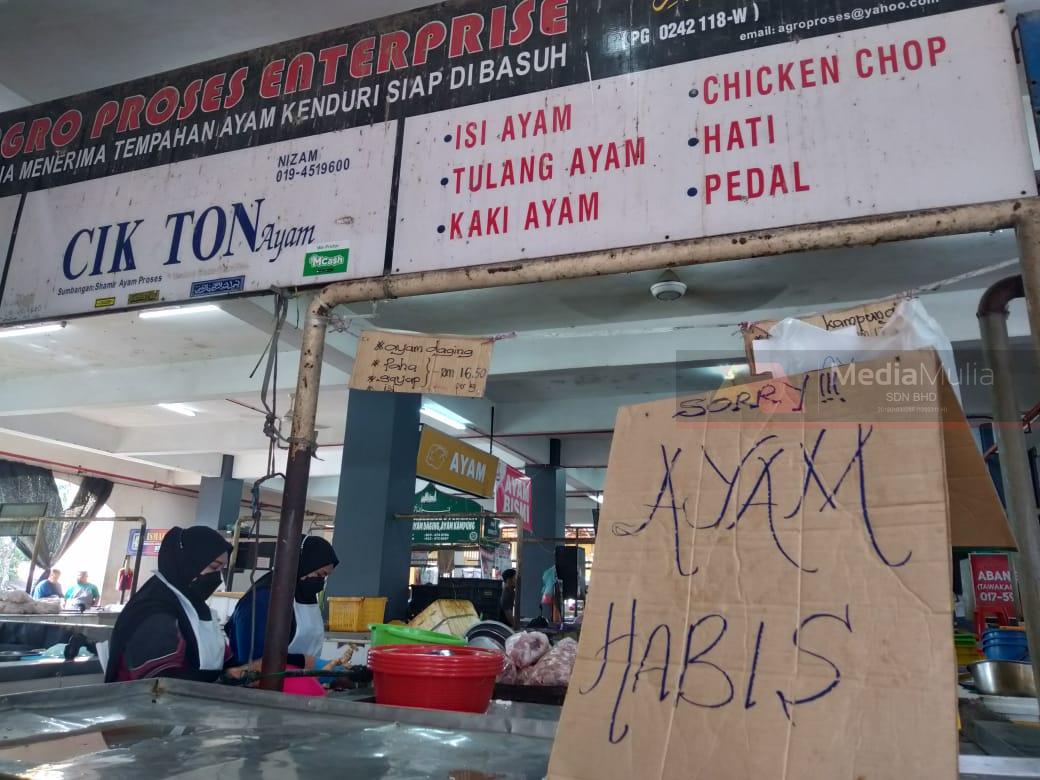 AGRO PROSES ENTERPRISE
(PG 0242118-W)
email: agroproses@yahoo.com
MENERIMA TEMPAHAN AYAM KENDURI SIAP DIBASUH
NIZAM
019-4519600
CIK TON Ayam
Sumbangan: Shamir Ayam Proses
We Prefer
MCash
• ISI AYAM
• TULANG AYAM
• KAKI AYAM
• CHICKEN CHOP
• HATI
• PEDAL
* ayam daging
* Paha
* sayap
* isi
RM 16.50
per kg
kampung
SORRY!!!
AYAM
HABIS
MediaMulia
SDN BHD
AYAM
AYAM
BISMI
AYAM DAGING, AYAM KAMPUNG
ABAN
(TAWAKAL
017-59